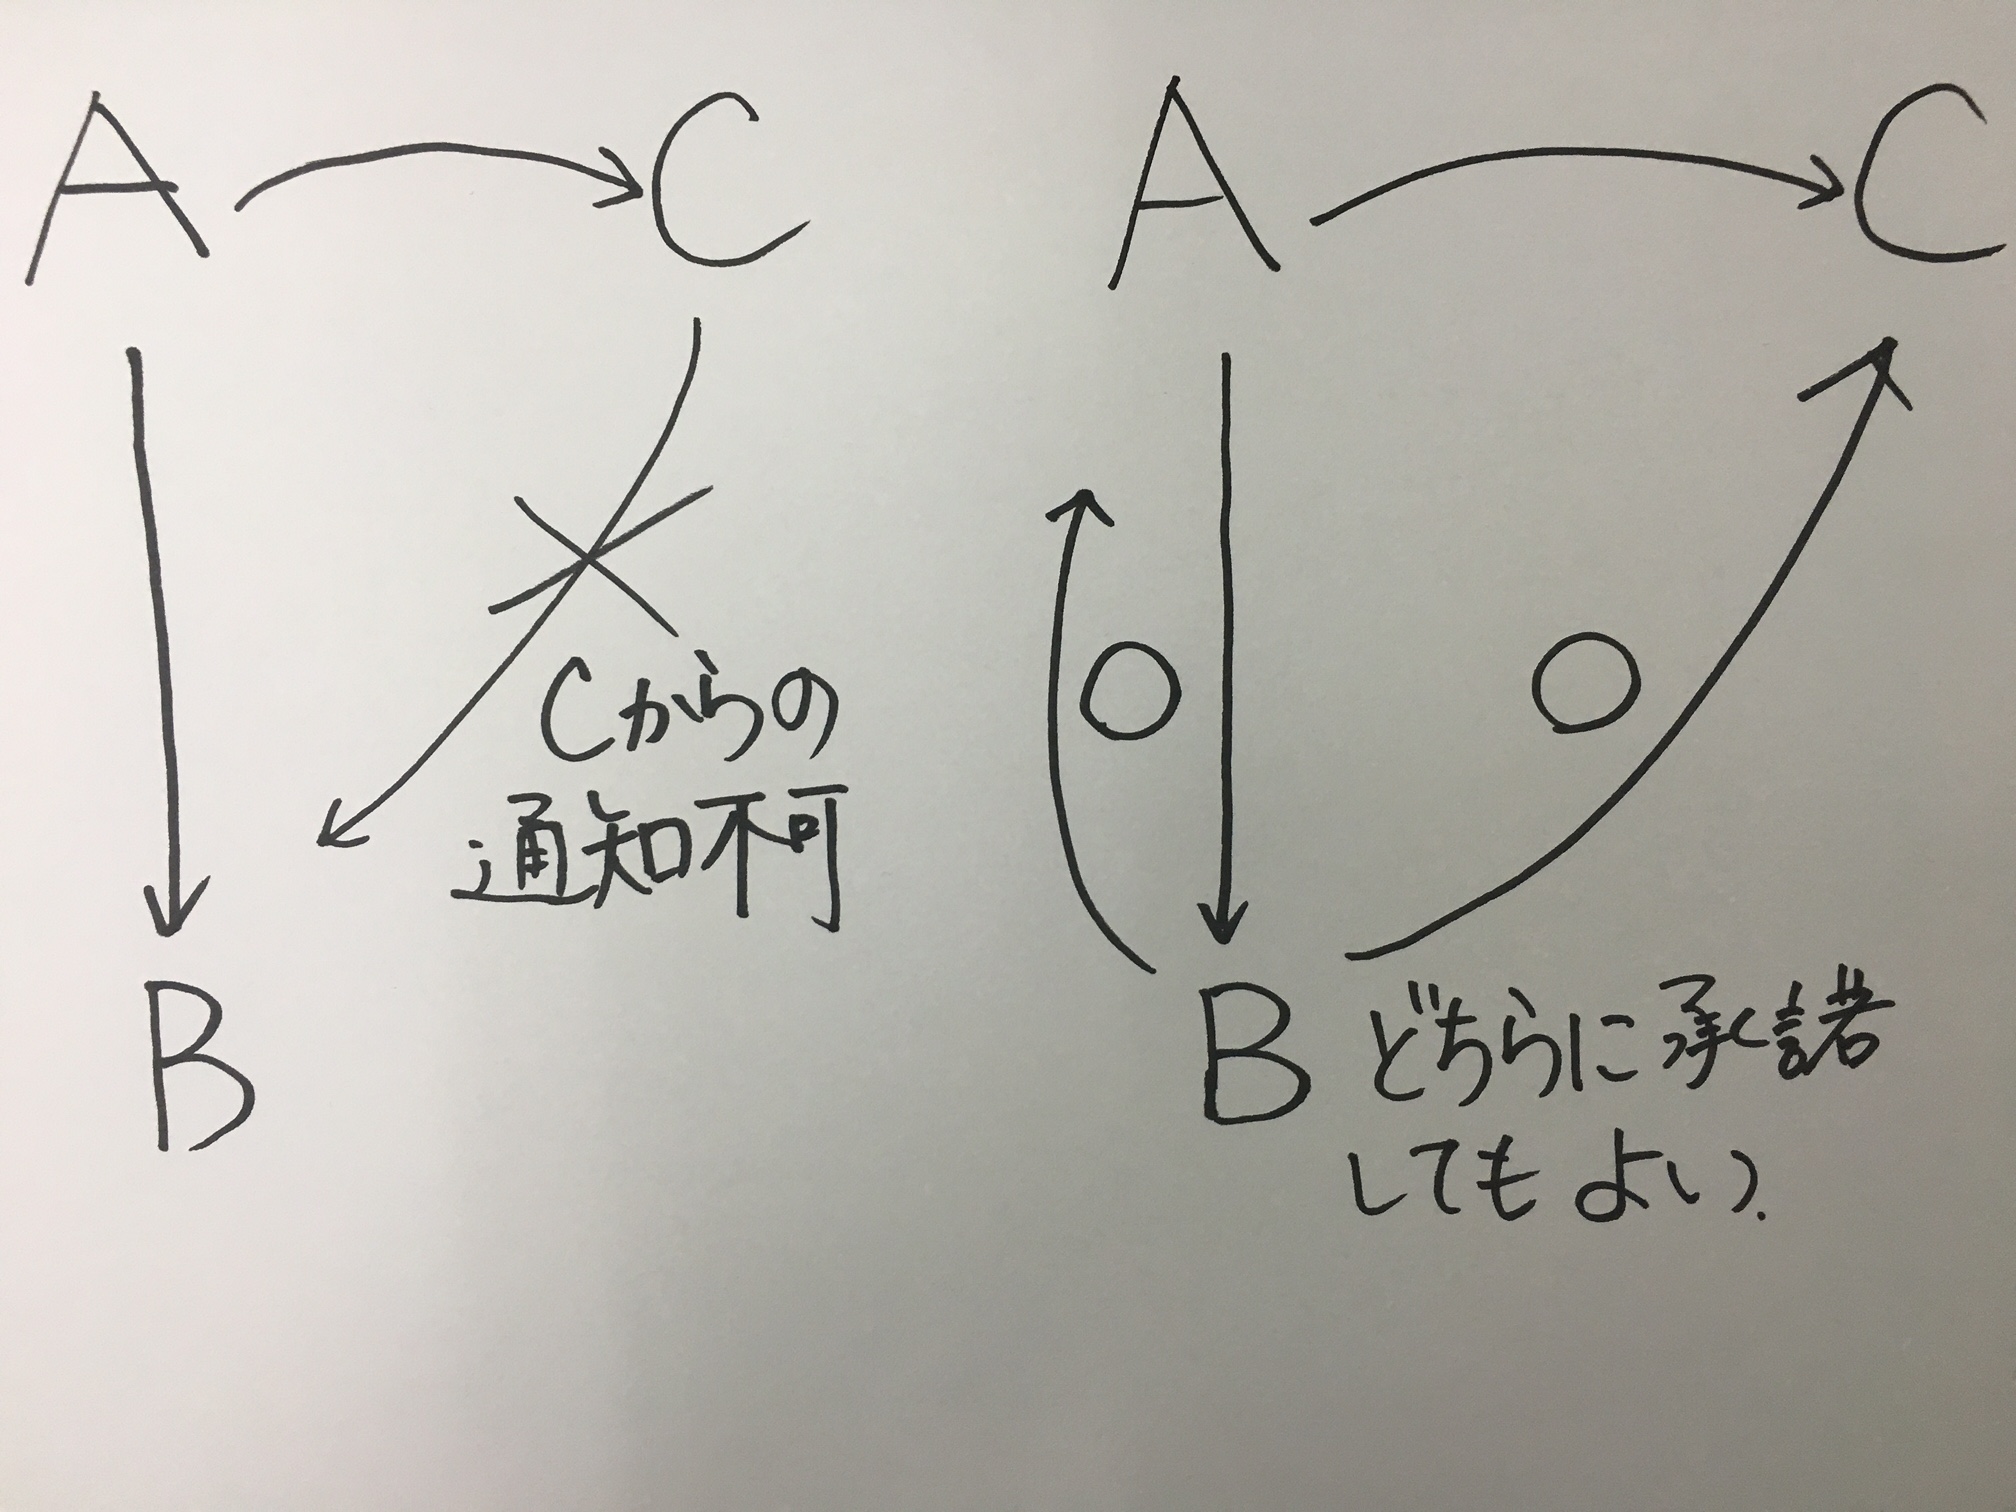 A C
Cからの
通知不可
B
A C
B どちらに承諾
してもよい.